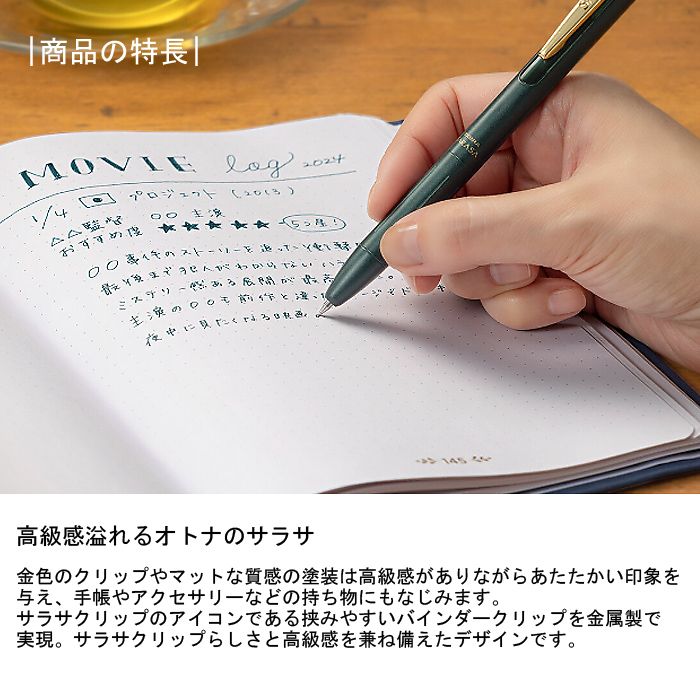 |商品の特長|
MOVIE log 2024
1/4 プロジェクト (2013)
△△監督 〇〇 主演
おすすめ度 ★★★★★
〇〇事件のストーリーを追った
最後まで犯人がわからない
ミステリー感ある展開が最高
主演の〇〇も前作と違い
夜中に見たくなる映画
145
高級感溢れるオトナのサラサ
金色のクリップやマットな質感の塗装は高級感がありながらあたたかい印象を
与え、手帳やアクセサリーなどの持ち物にもなじみます。
サラサクリップのアイコンである挟みやすいバインダークリップを金属製で
実現。サラサクリップらしさと高級感を兼ね備えたデザインです。